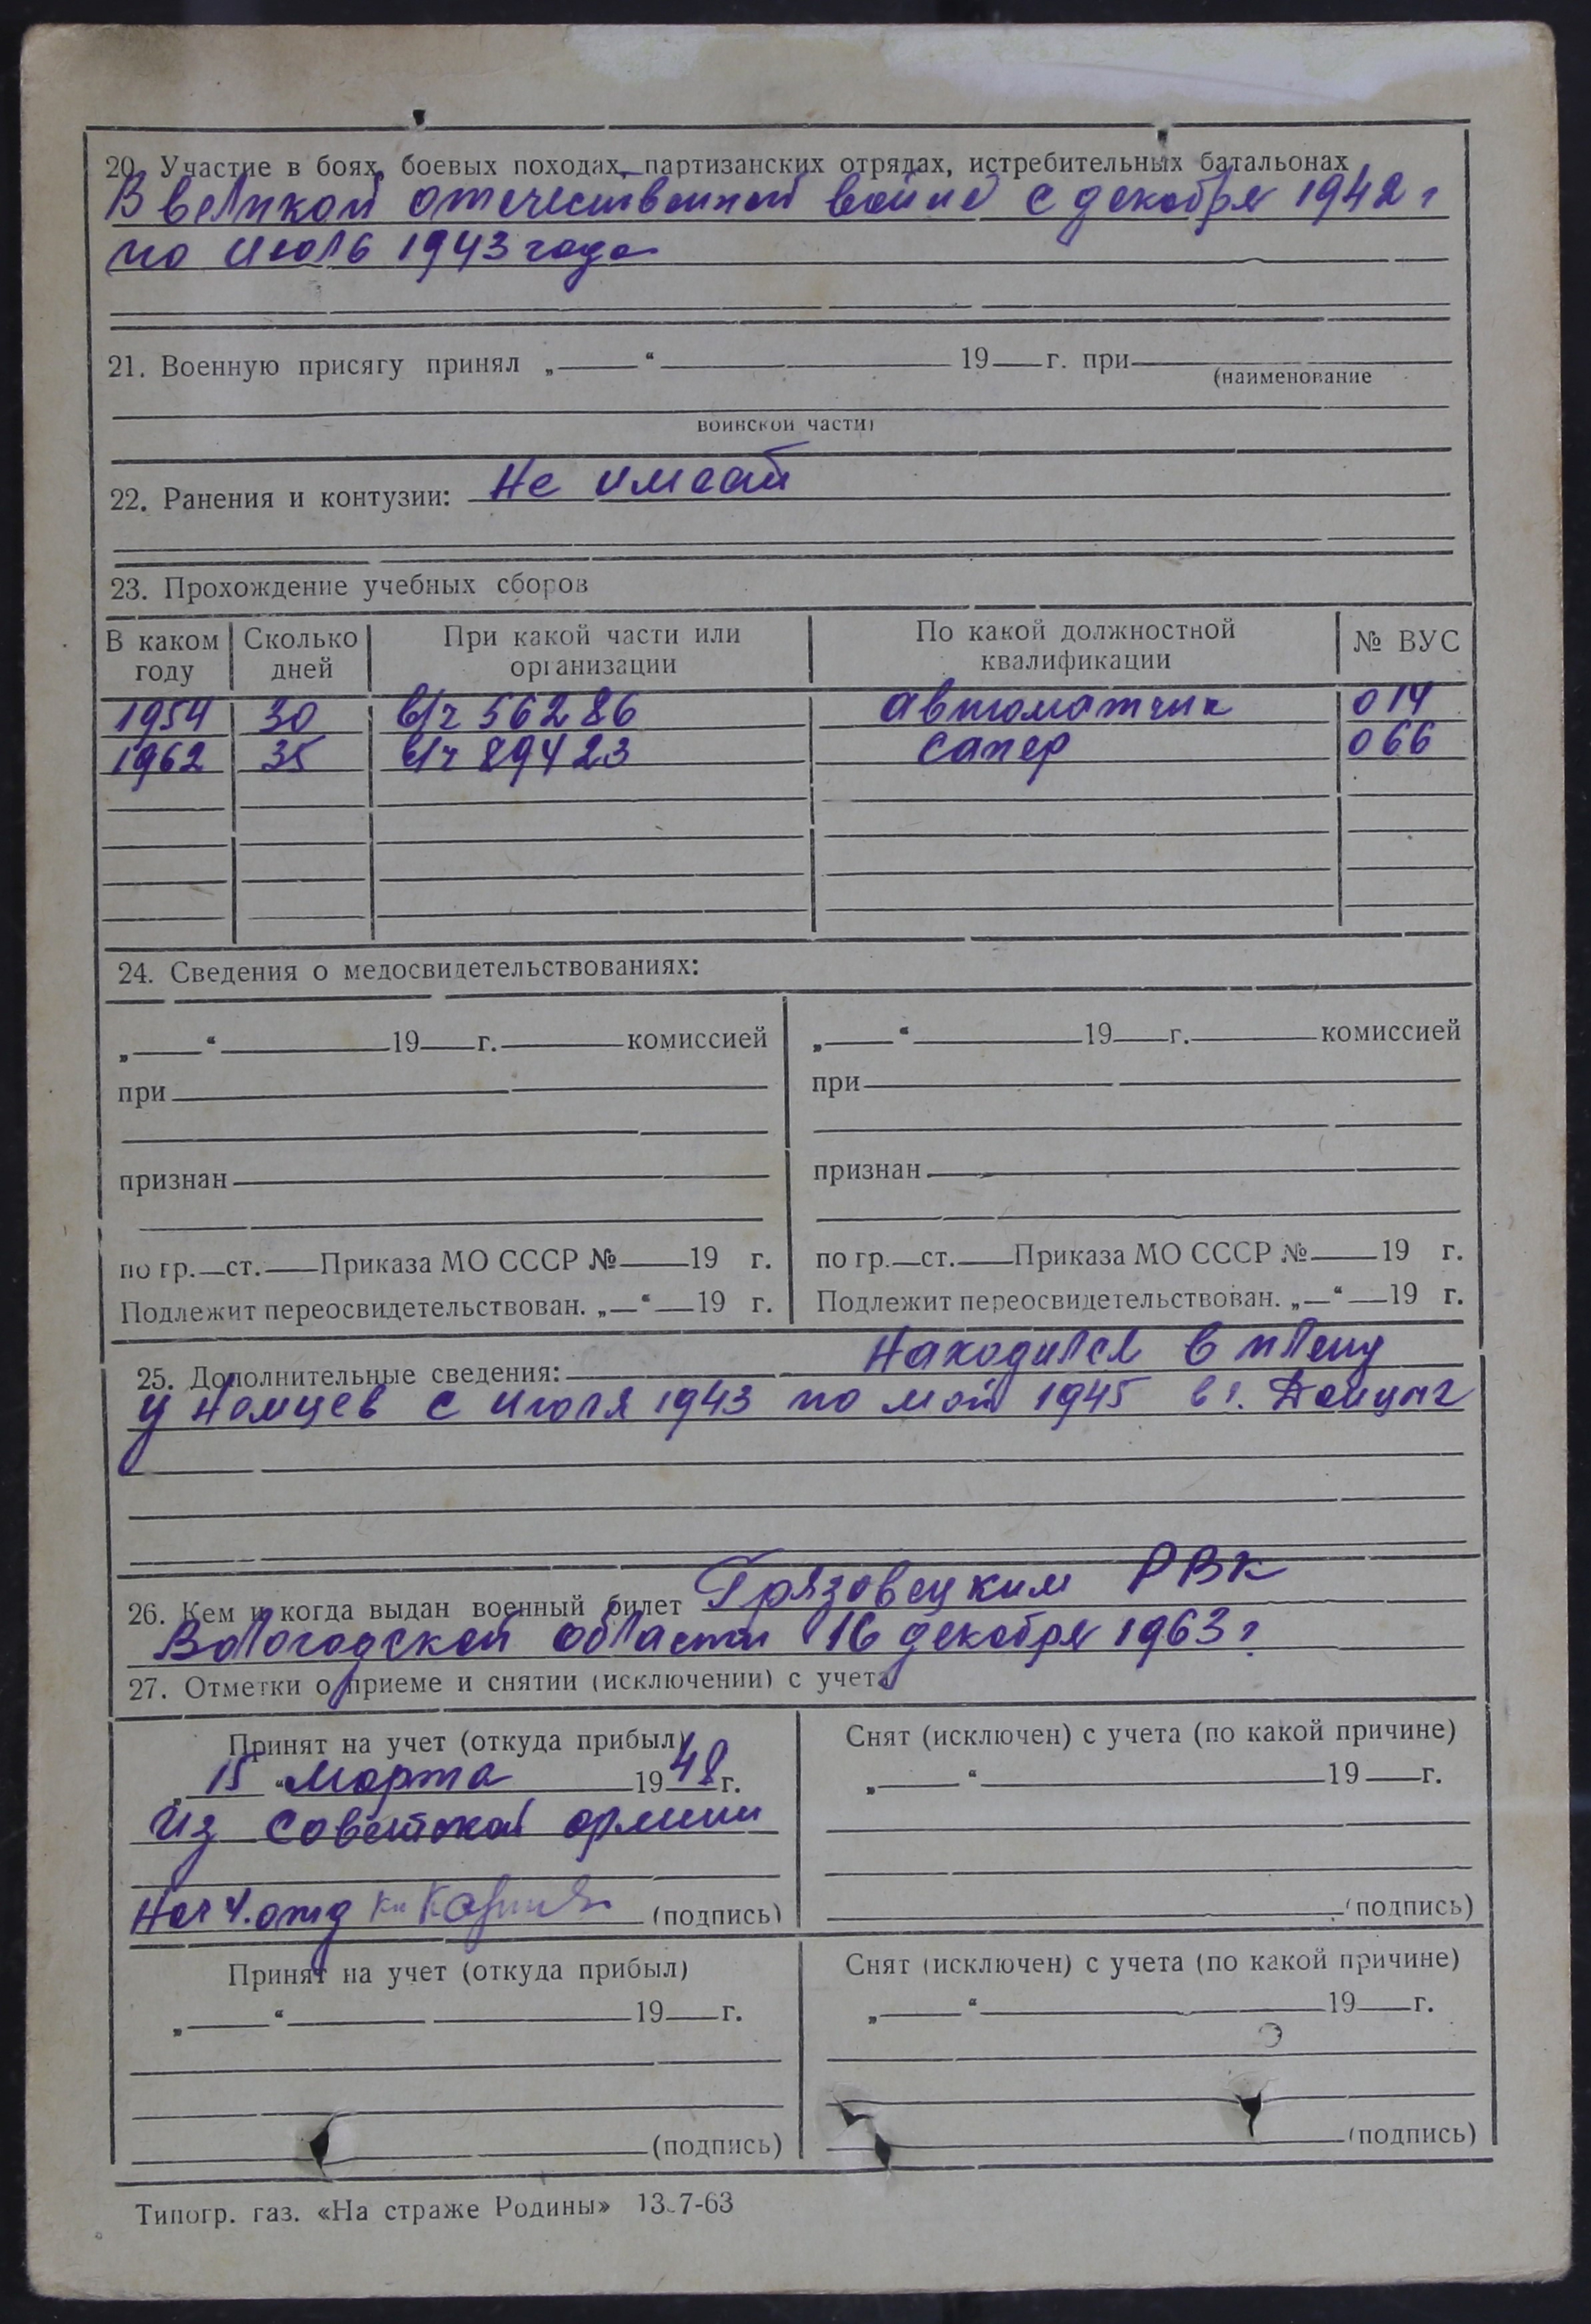 20. Участие в боях, боевых походах, партизанских отрядах, истребительных батальонах
В великой отечественной войне с декабря 1942 г
по июль 1943 года
21. Военную присягу принял „ “ 19 г. при
(наименование
воинской части)
22. Ранения и контузии: Не имеет
23. Прохождение учебных сборов
В каком году | Сколько дней | При какой части или организации | По какой должностной квалификации | № ВУС
1954 30 в/ч 56286 автоматчик 014
1962 35 в/ч 89423 сапер 066
24. Сведения о медосвидетельствованиях:
„ “ 19 г. комиссией „ “ 19 г. комиссией
при при
признан признан
по гр. ст. Приказа МО СССР № 19 г. по гр. ст. Приказа МО СССР № 19 г.
Подлежит переосвидетельствован. „ “ 19 г. Подлежит переосвидетельствован. „ “ 19 г.
25. Дополнительные сведения: Находился в плену
у немцев с июля 1943 по май 1945 в г. Данцыг
26. Кем и когда выдан военный билет Грязовецким РВК
Вологодской области 16 декабря 1963 г.
27. Отметки о приеме и снятии (исключении) с учета
Принят на учет (откуда прибыл) Снят (исключен) с учета (по какой причине)
„15“ марта 1948 г. „ “ 19 г.
из Советской армии
Нач 4. отд (подпись) (подпись)
Принят на учет (откуда прибыл) Снят (исключен) с учета (по какой причине)
„ “ 19 г. „ “ 19 г.
(подпись) (подпись)
Типогр. газ. «На страже Родины» 13-7-63